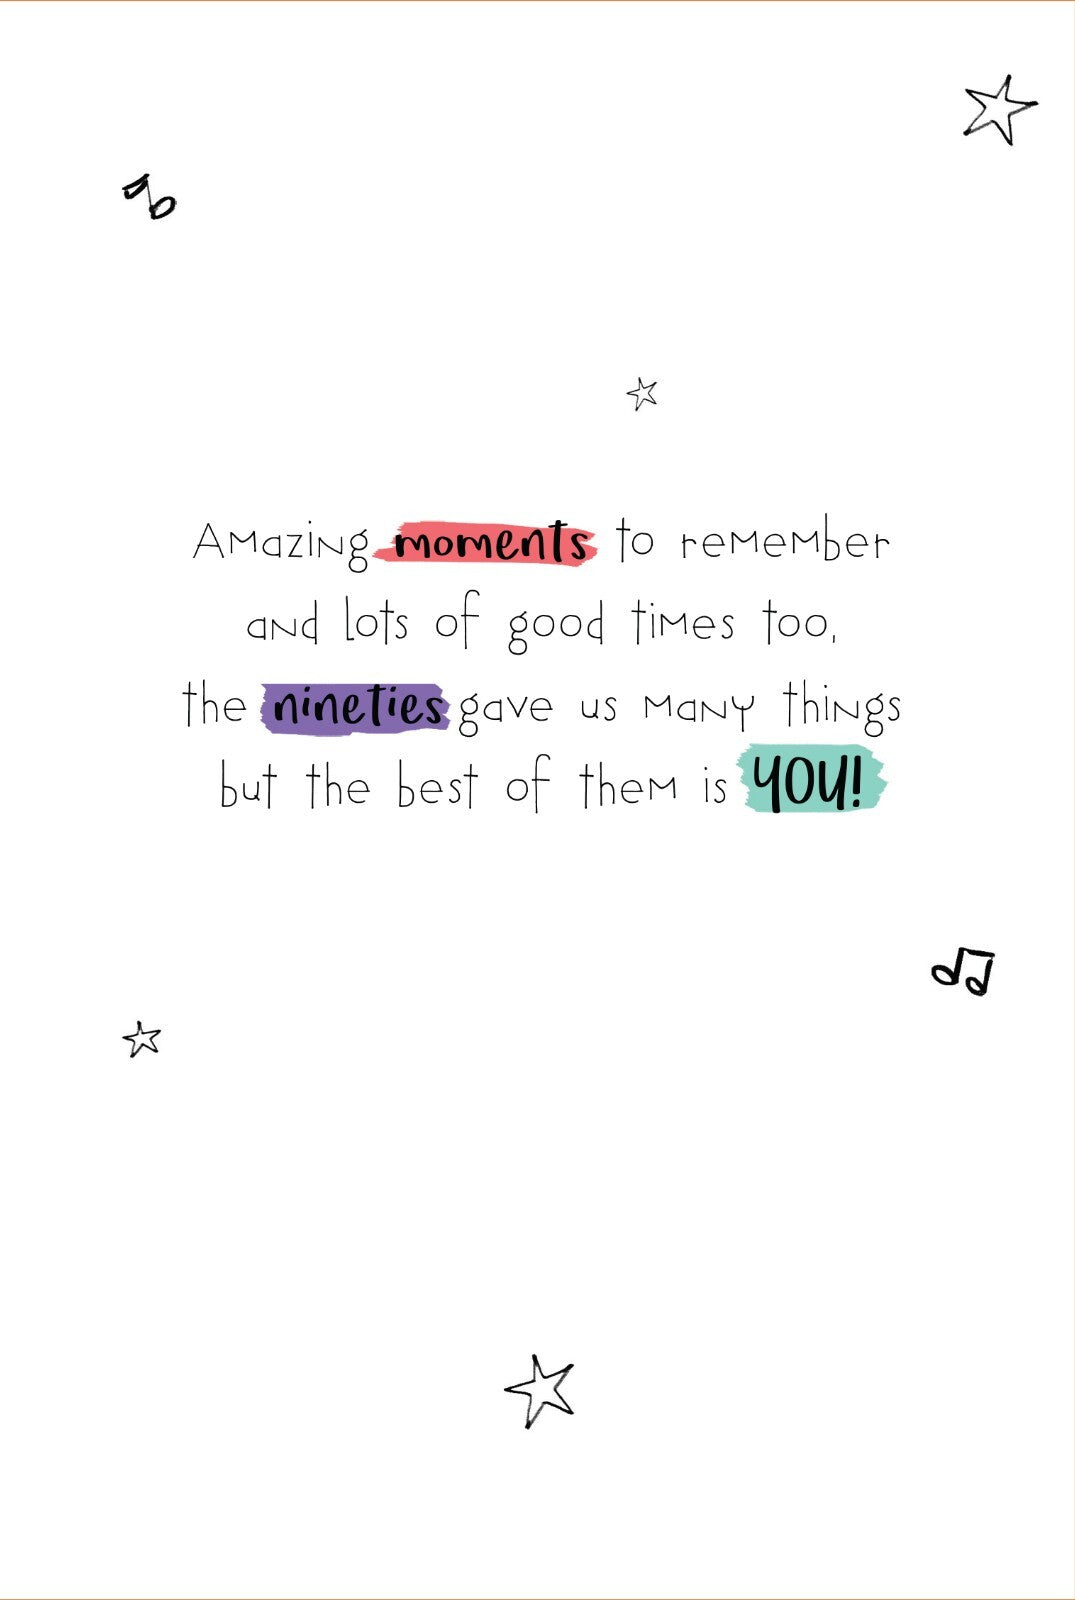 Amazing moments to remember
and lots of good times too,
the nineties gave us many things
but the best of them is YOU!